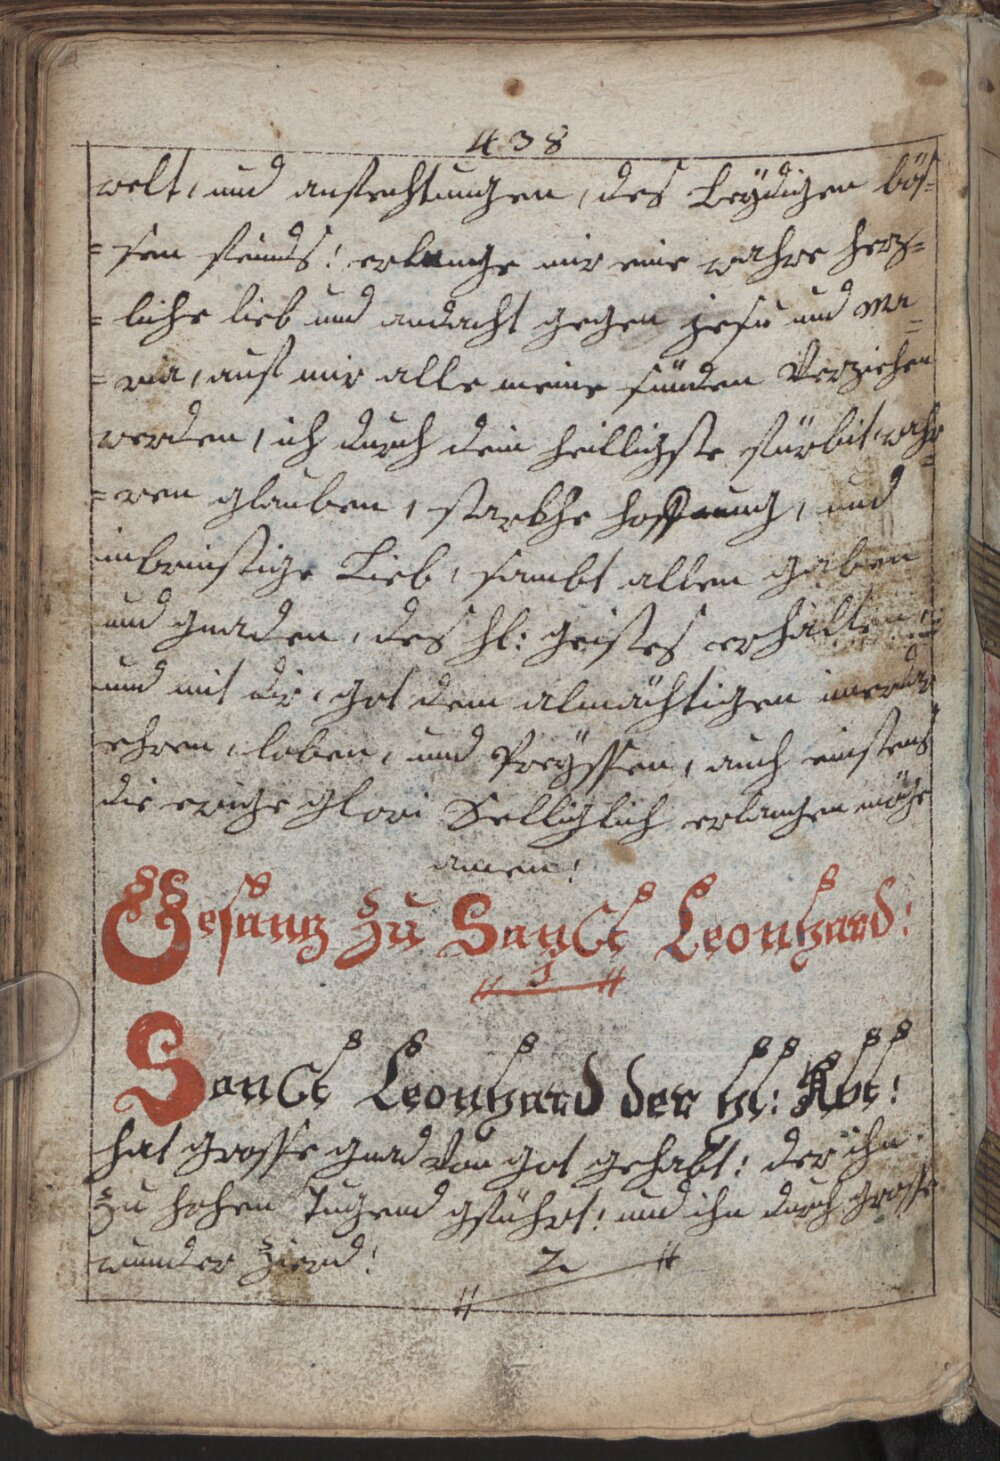 438
welt, und anfechtungen, des Leydigen bös-
=sen feinds! erlange mir eine wahre herz=
=liche lieb und andacht gegen jesu und Ma=
=ria, auf mir alle meine sünden Verziehen
werden, ich durch dein heilligste fürbit wahr=
=ren glauben, starkhe hoffnung, und
inbrinstige Lieb, sambt allen gaben
und gnaden, des hl: geistes erhalten
und mit dir, got dem almächtigen imerdar
ehren, loben, und Preyssen, auch einstens
die ewige glori Selliglich erlangen möge
amen!
Gesang Zu SanCt Leonhard!
1
SanCt Leonhard der hl: Abt!
hat grosse gnad Von got gehabt: der ihn
zu hohen Tugend gführt! und ihn durch grosse
wunder Zierd!
2